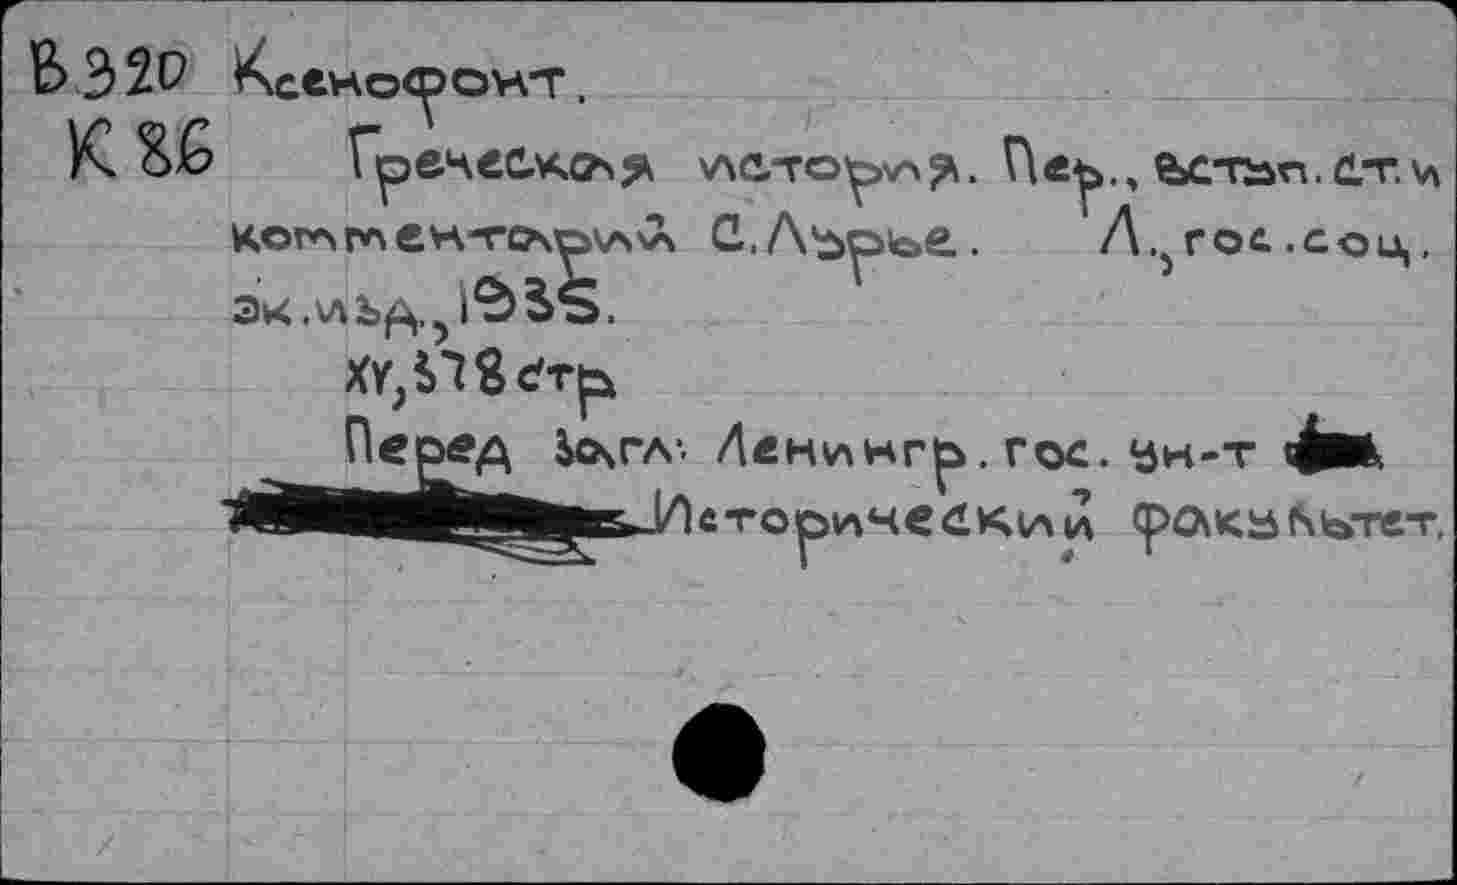 В320 Ксенофонт.
К86 Греческая история. Пер., вступ. ст. и
комментарий С. Лурье. Л., гос. соц.
эк. изд., 1935.
XV, 378 стр
Перед загл: Ленингр. гос. ун-т
Исторический факультет.